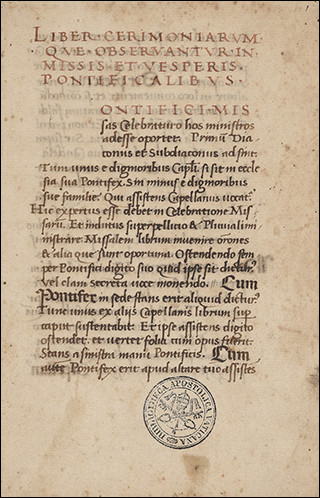 LIBER CERIMONIARVM
QVE OBSERVANTVR IN
MISSIS ET VESPERIS
PONTIFICALIBVS
ONTIFICI MIS
sas Celebraturo hos ministros
adesse oportet. Primū Dia
conus et Subdiaconus adsint.
Tum unus e dignioribus Capli. si sit in eccle
sia sua Pontifex. Sin minus e dignioribus
sue familie. Qui assistens Capellanus vocat.
Hic expertus esse debet in Celebratione Mis
sarū. Et indutus superpellicio & Pluviali mi
nistrare. Missalem librum invenire orones
& alia que sunt oportuna. Ostendendo sem
per Pontifici digito suo quid ipse sit dictur.
Vel etiam secreta voce monendo. Cum
Pontifex in sede stans erit aliquid dictur.
Tunc unus ex alijs Capellanis librum sup
caput sustentabit. Et ipse assistens digito
ostendet. et vertet folia cum opus fuerit.
Stans a sinistra manu Pontificis. Cum
Pontifex erit apud altare tuc assistēs
BIBLIOTHECA APOSTOLICA VATICANA